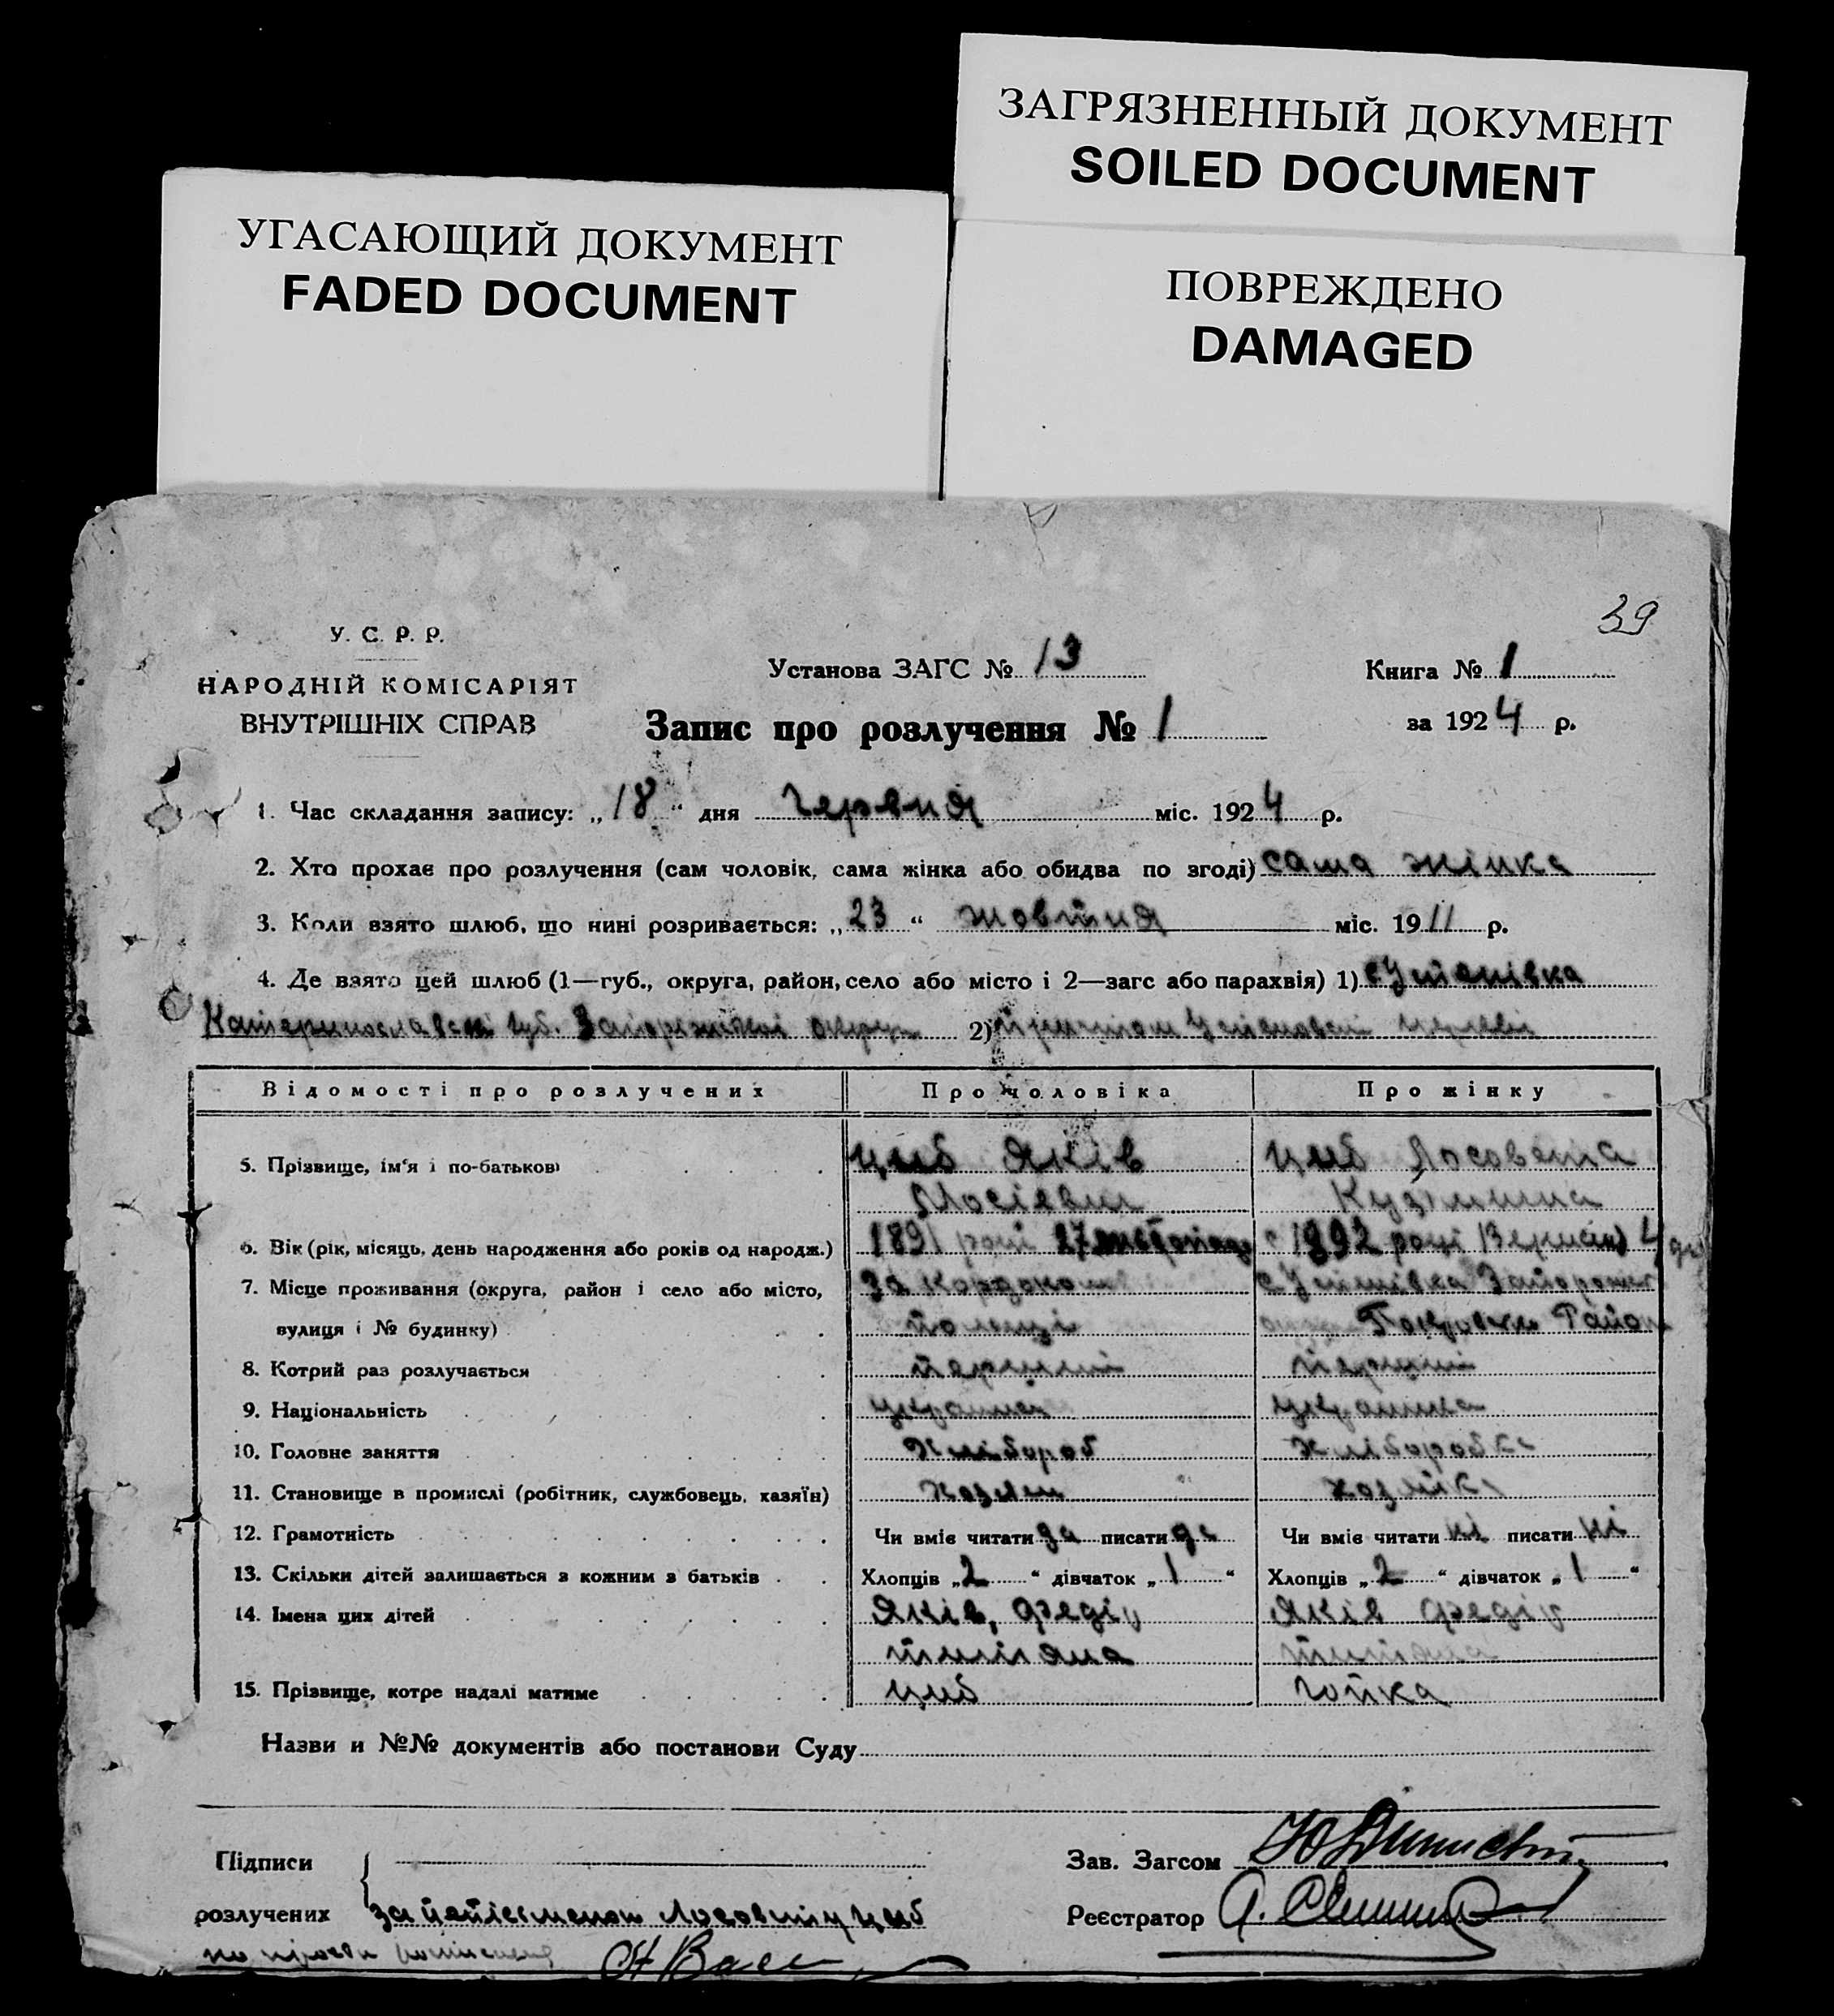 ЗАГРЯЗНЕННЫЙ ДОКУМЕНТ
SOILED DOCUMENT
УГАСАЮЩИЙ ДОКУМЕНТ
FADED DOCUMENT
ПОВРЕЖДЕНО
DAMAGED
39
У. С. Р. Р.
НАРОДНІЙ КОМІСАРІЯТ
ВНУТРІШНІХ СПРАВ
Установа ЗАГС № 13
Книга № 1
Запис про розлучення № 1
за 1924 р.
1. Час складання запису: „18“ дня червня міс. 1924 р.
2. Хто прохає про розлучення (сам чоловік, сама жінка або обидва по згоді) сама жінка
3. Коли взято шлюб, що нині розривається: „23“ жовтня міс. 1911 р.
4. Де взято цей шлюб (1—губ., округа, район, село або місто і 2—загс або парахвія) 1)
Катеринославскі губ. Запоріжскої округи 2)
Відомості про розлучених Про чоловіка Про жінку
5. Прізвище, ім‘я і по-батькові Циб Яків Циб Лосовета
Мосієвич Кузьмина
6. Вік (рік, місяць, день народження або років од народж.) 1891 році 27 1892 році
7. Місце проживання (округа, район і село або місто, за кордоном
вулиця і № будинку) Район
8. Котрий раз розлучається перший перший
9. Національність
10. Головне заняття Хлібороб Хліборобка
11. Становище в промислі (робітник, службовець, хазяїн)
12. Грамотність Чи вміє читати да писати да Чи вміє читати ні писати ні
13. Скільки дітей залишається з кожним з батьків Хлопців „2“ дівчаток „1“ Хлопців „2“ дівчаток „1“
14. Імена цих дітей Яків, Федір Яків Федір
15. Прізвище, котре надалі матиме Циб Чопка
Назви и №№ документів або постанови Суду
Підписи Зав. Загсом
розлучених Лосовету Циб Реєстратор